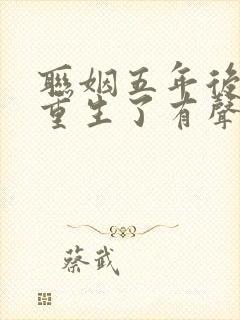 聯姻五年後
重生了有聲
蔡武